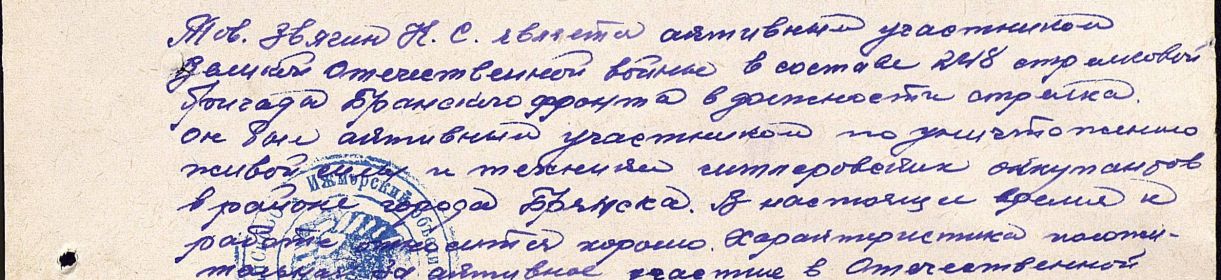 Тов. Звягин Н. С. является активным участником
Великой Отечественной войны в составе 248 стрелковой
бригада Брянского фронта в должности стрелка.
Он был активным участником по уничтожению
живой силы и техники гитлеровских оккупантов
в районе города Брянска. В настоящие время к
работе относится хорошо. Характеристика положи-
тельная за активное участие в Отечественной
Ижморский объедин